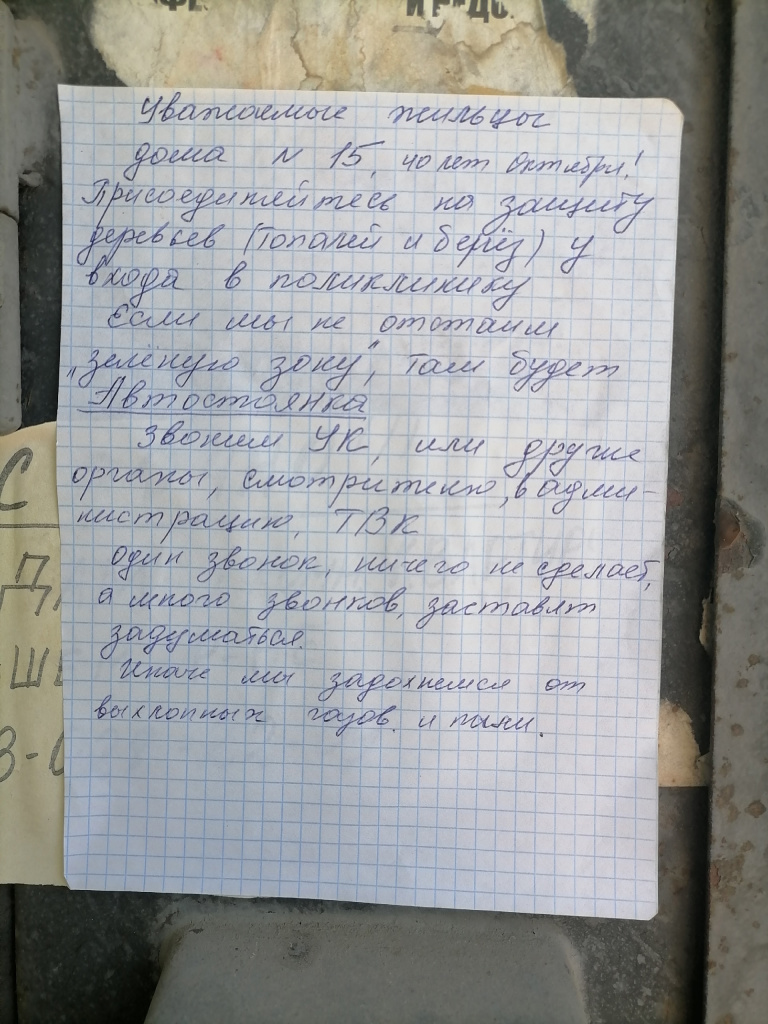 Уважаемые жильцы
дома N 15, 40 лет Октября!
Присоединяйтесь на защиту
деревьев (топалей и берёз) у
входа в поликлинику
Если мы не отстоим
"зелёную зону", там будет
Автостоянка
Звоним УК, или другие
органы, смотрителю, в адми-
нистрацию, ТВК
один звонок, ничего не сделает,
а много звонков, заставят
задуматься.
Иначе мы задохнемся от
выхлопных газов. и пыли.
С
Д
ШЕ
3-0